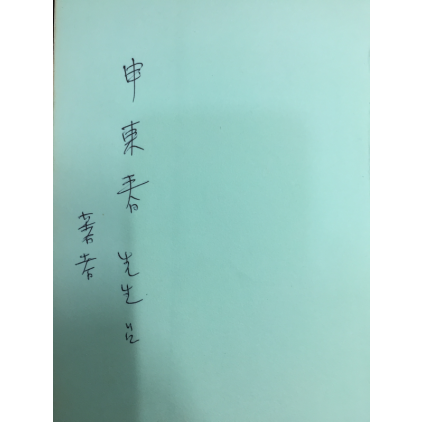 申東春 先生님
著者